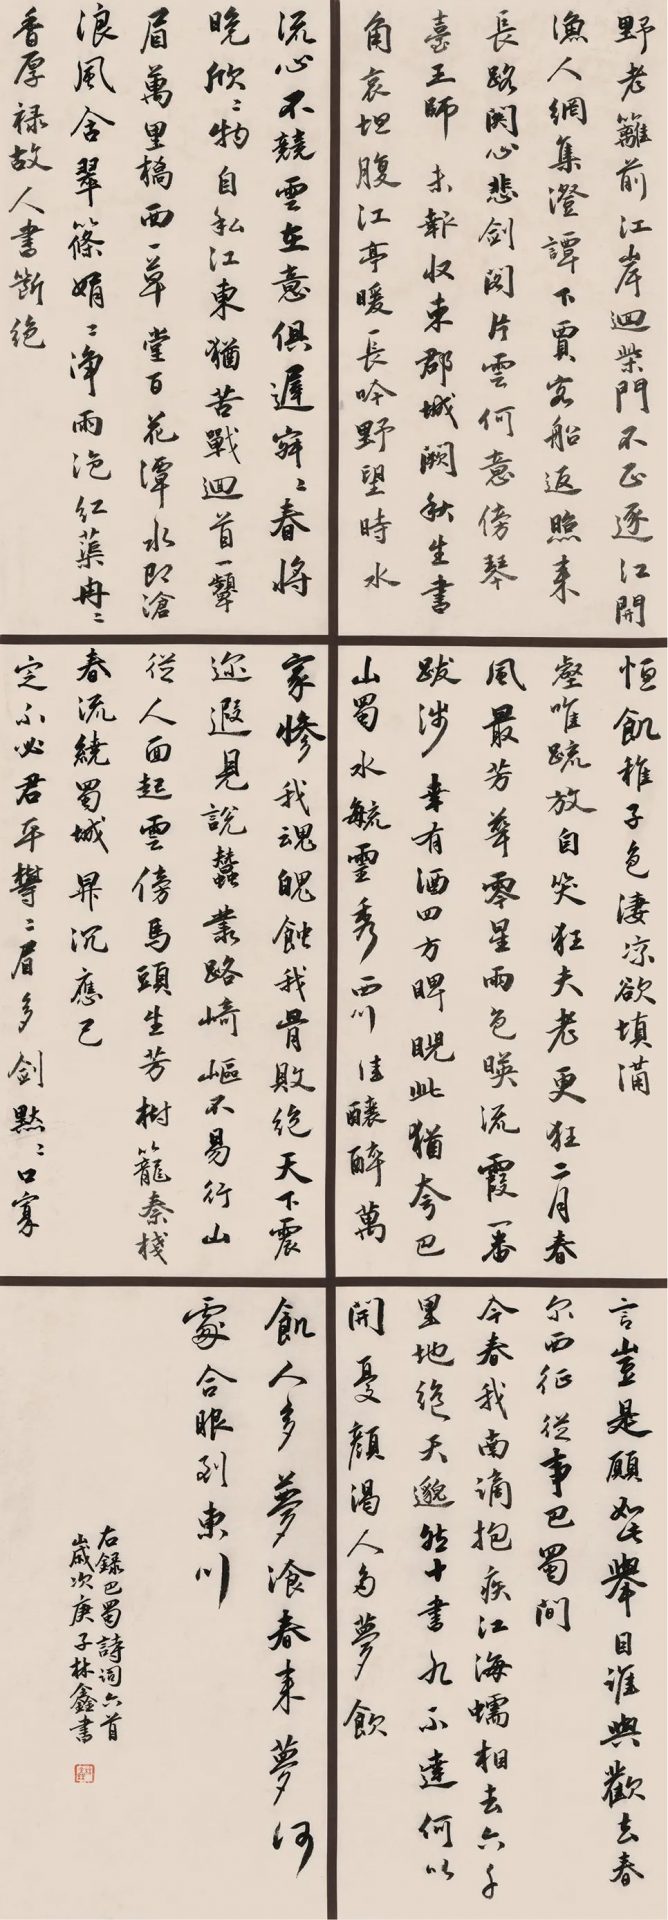 野老籬前江岸迴柴門不正逐江開
漁人網集澄潭下賈客船返照來
長路関心悲剑閣片雲何意傍琴
臺王師未報收東郡城闕秋生畫
角哀坦腹江亭暖長吟野望時水
流心不競雲在意俱遲寂〻春將
晚欣〻物自私江東猶苦戰迴首一顰
眉萬里橋西一草堂百花潭水即滄
浪風含翠篠娟〻淨雨浥紅蕖冉〻
香厚禄故人書斷絕
恒飢稚子色淒涼欲填溝
壑唯疏放自笑狂夫老更狂二月春
風最芳華零星雨色暎流霞一番
跋涉幸有酒四方睥睨此猶夸巴
山蜀水毓靈秀西川佳釀醉萬
家慘我魂魄蝕我骨敗絕天下震
迩遐見說蠶叢路崎嶇不易行山
從人面起雲傍馬頭生芳樹籠秦棧
春流繞蜀城昇沉應已
定不必君平鬱〻眉多剑默〻口寡
言豈是願如此舉目誰與歡去春
尔西征從事巴蜀間
今春我南謫抱疾江海壖相去六千
里地絕天邈然十書九不達何以
開憂顏渴人多夢飲
飢人多夢飡春來夢何
處合眼到東川
右録巴蜀詩詞六首
歲次庚子林鑫書